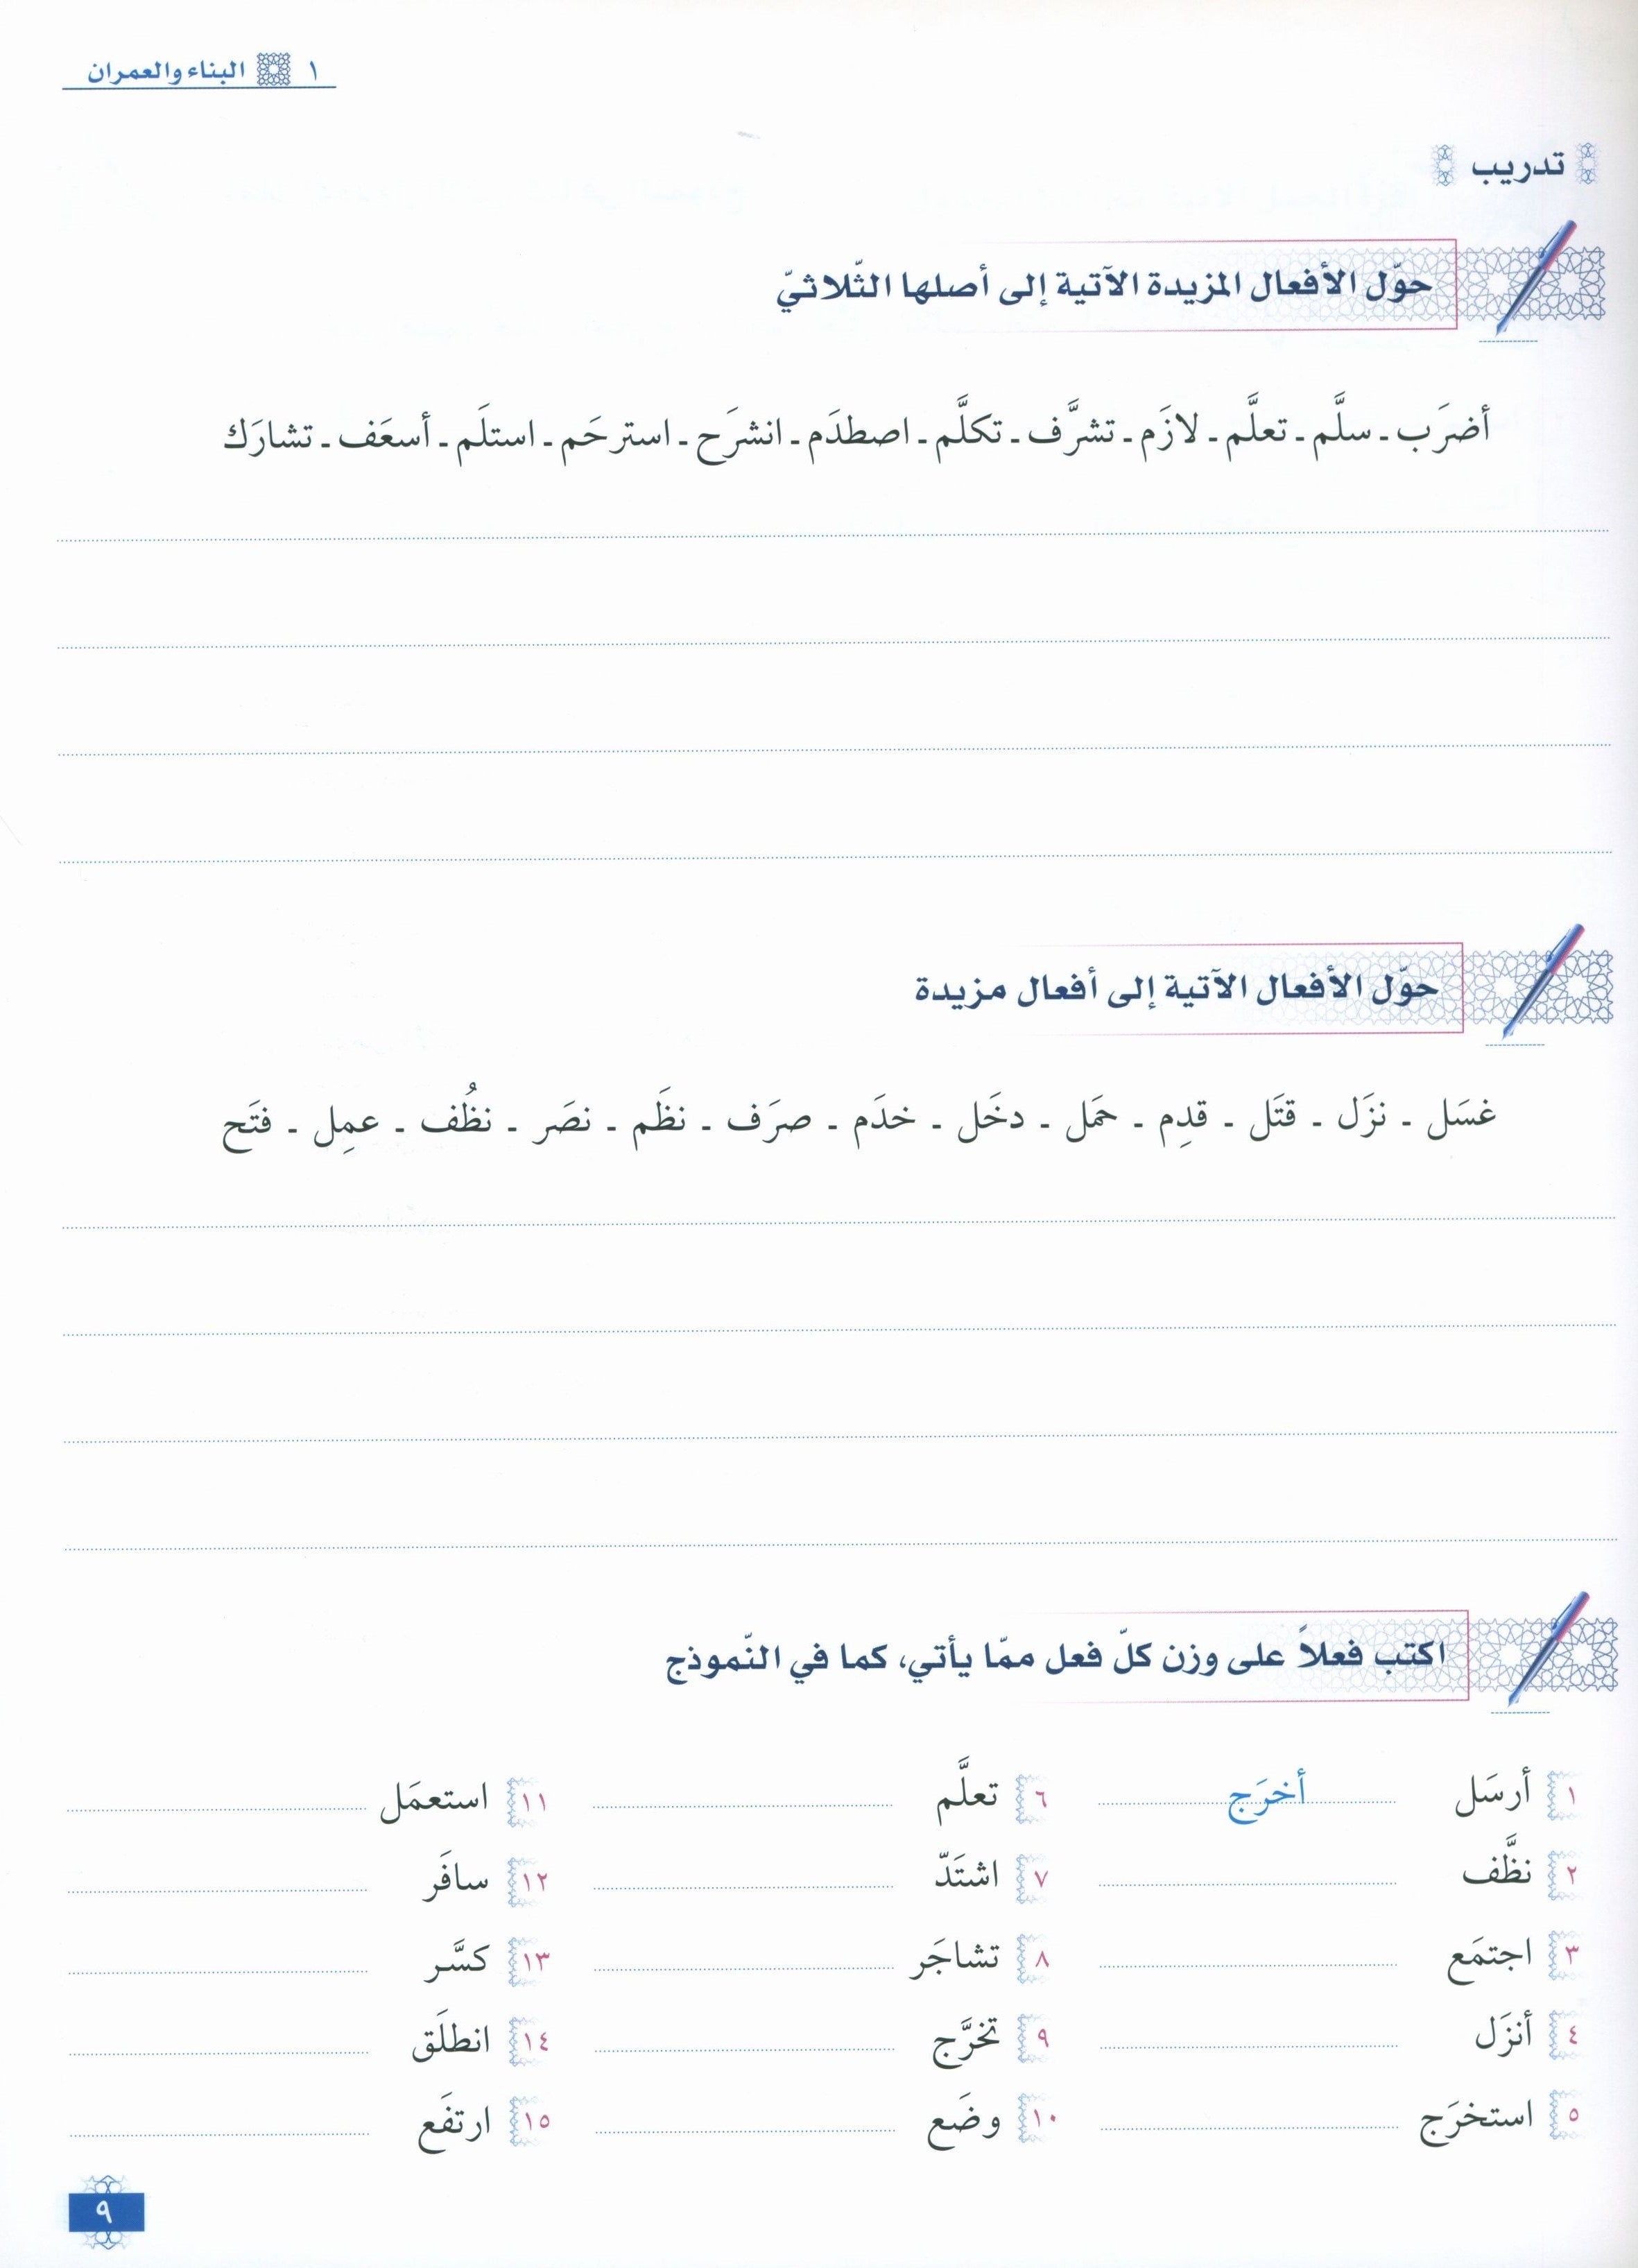 ١ البناء والعمران
تدريب
حوّل الأفعال المزيدة الآتية إلى أصلها الثّلاثيّ
أضرَب ـ سلَّم ـ تعلَّم ـ لازَم ـ تشرَّف ـ تكلَّم ـ اصطدَم ـ انشرَح ـ استرحَم ـ استلَم ـ أسعَف ـ تشارَك
حوّل الأفعال الآتية إلى أفعال مزيدة
غسَل ـ نزَل ـ قتَل ـ قدِم ـ حمَل ـ دخَل ـ خدَم ـ صرَف ـ نظَم ـ نصَر ـ نظُف ـ عمِل ـ فتَح
اكتب فعلاً على وزن كلّ فعل ممّا يأتي، كما في النّموذج
١ أرسَل أخرَج
٢ نظَّف
٣ اجتمَع
٤ أنزَل
٥ استخرَج
٦ تعلَّم
٧ اشتَدّ
٨ تشاجَر
٩ تخرَّج
١٠ وضَع
١١ استعمَل
١٢ سافَر
١٣ كسَّر
١٤ انطلَق
١٥ ارتفَع
٩